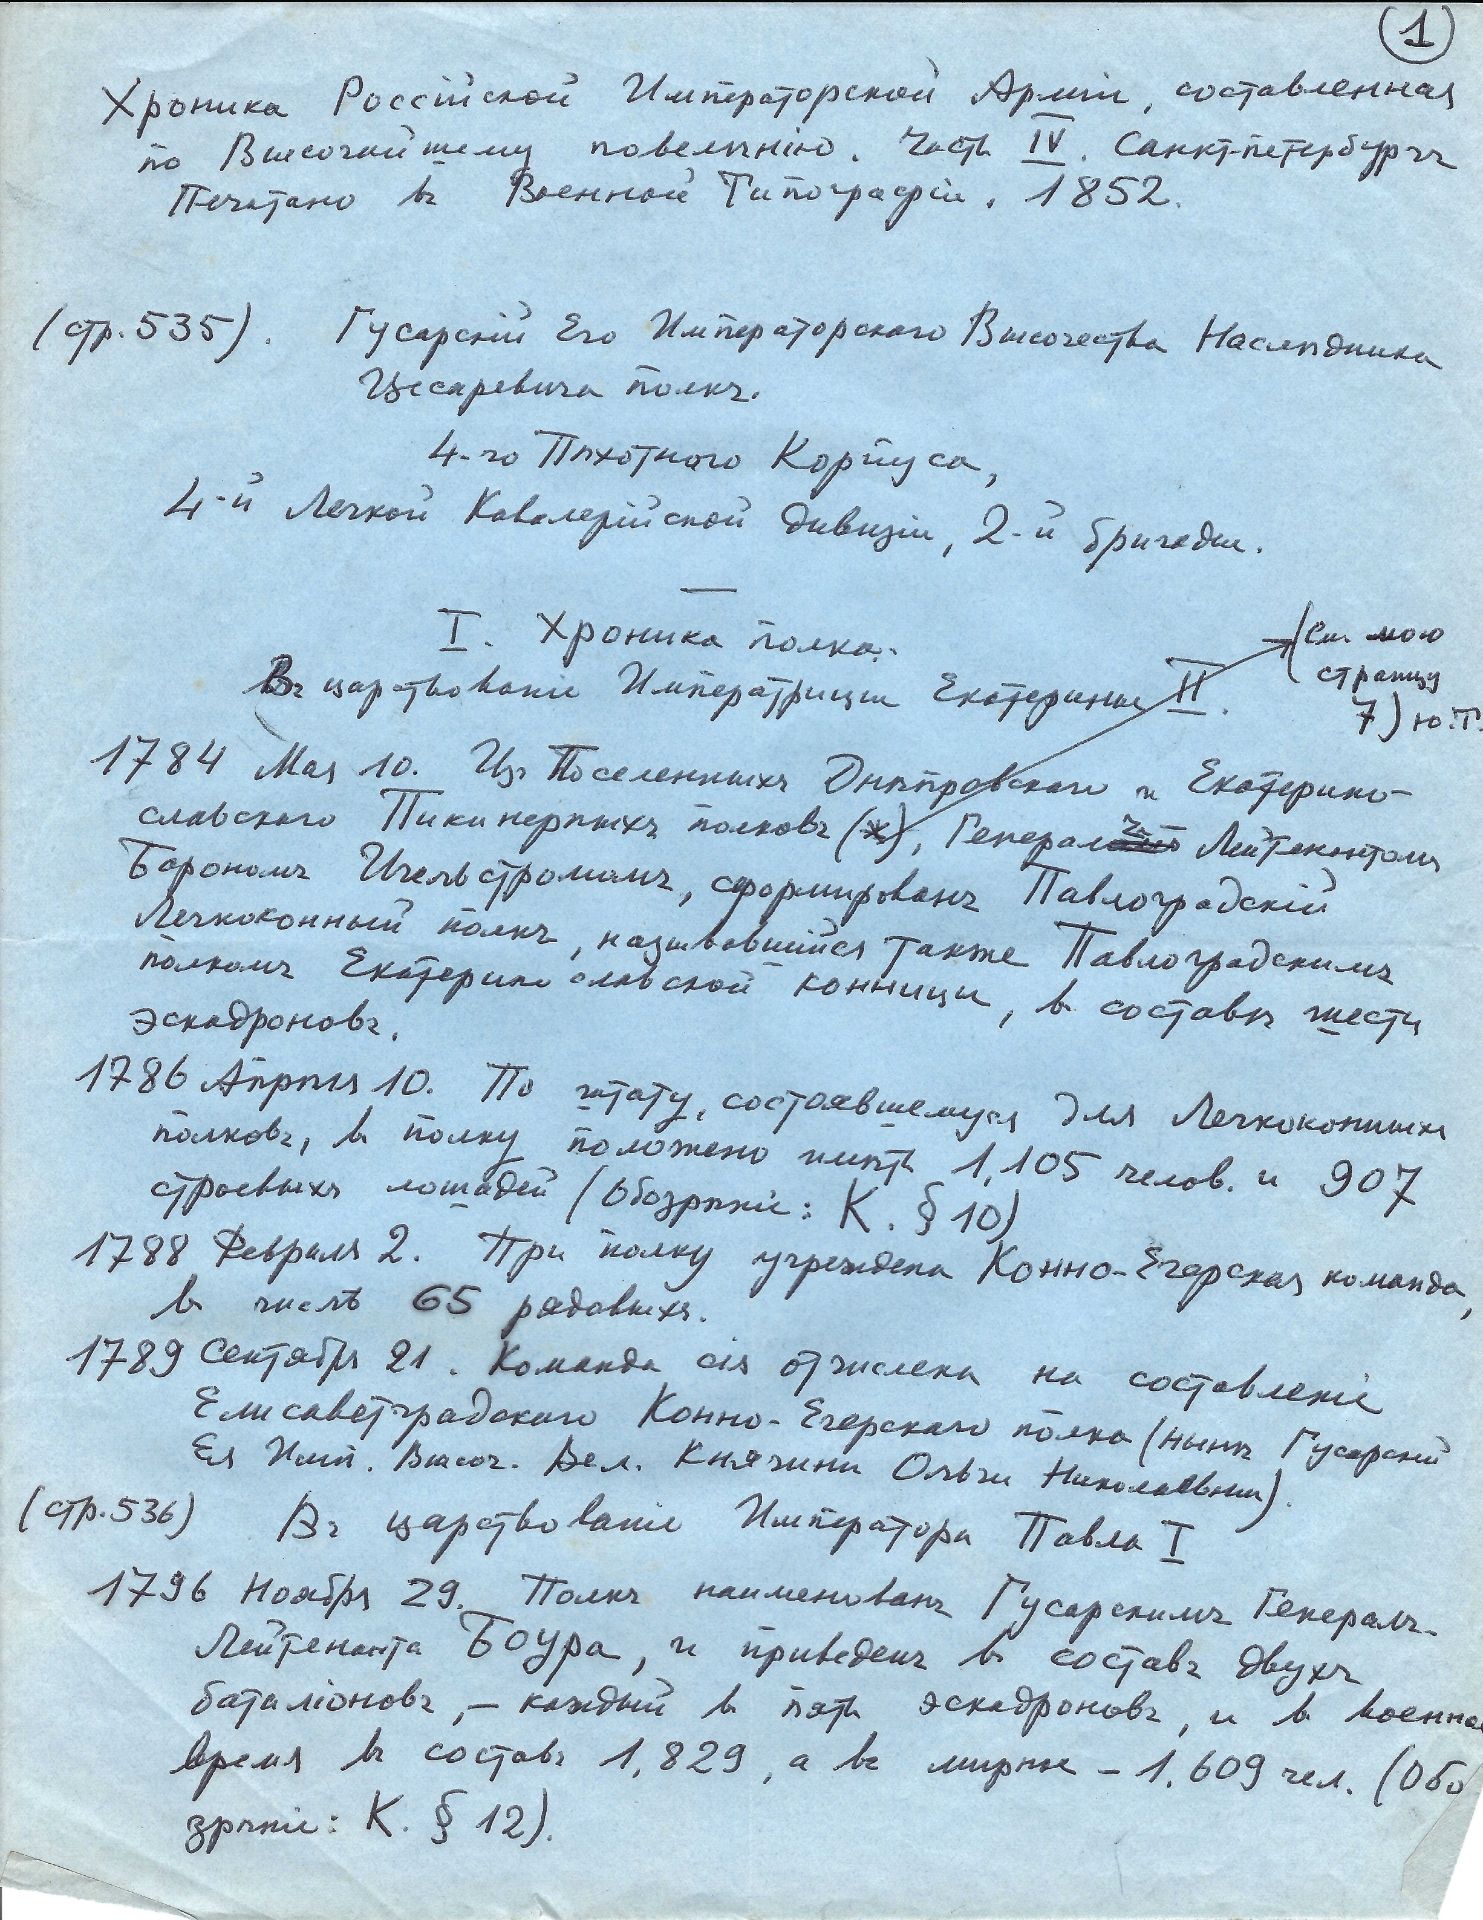 (1)
Хроника Россійской Императорской Арміи, составленная
по Высочайшему повелѣнію. Часть IV. Санктпетербургъ
Печатано въ Военной Типографіи. 1852.
(стр. 535). Гусарскій Его Императорскаго Высочества Наслѣдника
Цесаревича полкъ.
4-го Пѣхотнаго Корпуса,
4-й Легкой Кавалерійской дивизіи, 2-й бригады.
I. Хроника полка.
Въ царствованіе Императрицы Екатерины II.
(См. мою
страницу
7) Ю.Т.
1784 Мая 10. Изъ Поселенныхъ Днѣпровскаго и Екатерино-
славскаго Пикинерныхъ полковъ (*), Генералъ Лейтенантомъ
Барономъ Игельстромомъ, сформированъ Павлоградскій
Легкоконный полкъ, называвшійся также Павлоградскимъ
полкомъ Екатеринославской конницы, въ составѣ шести
эскадроновъ.
1786 Апрѣля 10. По штату, состоявшемуся для Легкоконныхъ
полковъ, въ полку положено имѣть 1,105 челов. и 907
строевыхъ лошадей (Обозрѣніе: К. § 10)
1788 Февраля 2. При полку учреждена Конно-Егерская команда,
въ числѣ 65 рядовыхъ.
1789 Сентября 21. Команда сія отчислена на составленіе
Елисаветградскаго Конно-Егерскаго полка (нынѣ Гусарскій
Ея Имп. Высоч. Вел. Княгини Ольги Николаевны).
(стр. 536) Въ царствованіе Императора Павла I
1796 Ноября 29. Полкъ наименованъ Гусарскимъ Генералъ-
Лейтенанта Боура, и приведенъ въ составъ двухъ
баталіоновъ, – каждый въ пять эскадроновъ, и въ военное
время въ составъ 1,829, а въ мирное – 1,609 чел. (Обо
зрѣніе: К. § 12).